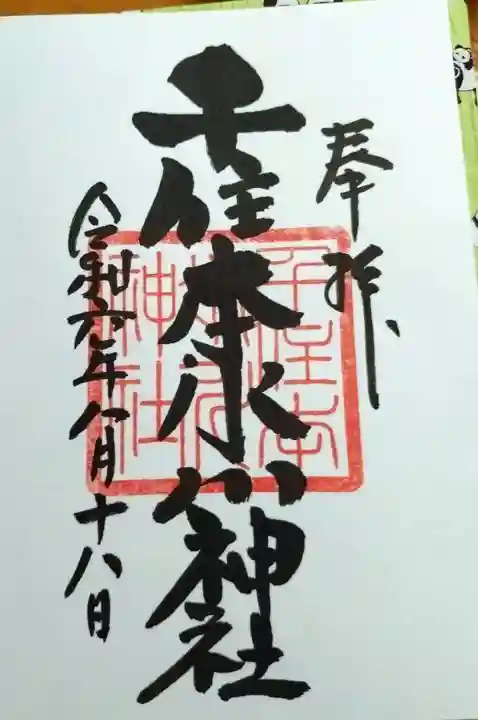 奉拝
千住本氷川神社
令和六年八月十八日
千住本
氷川
神社